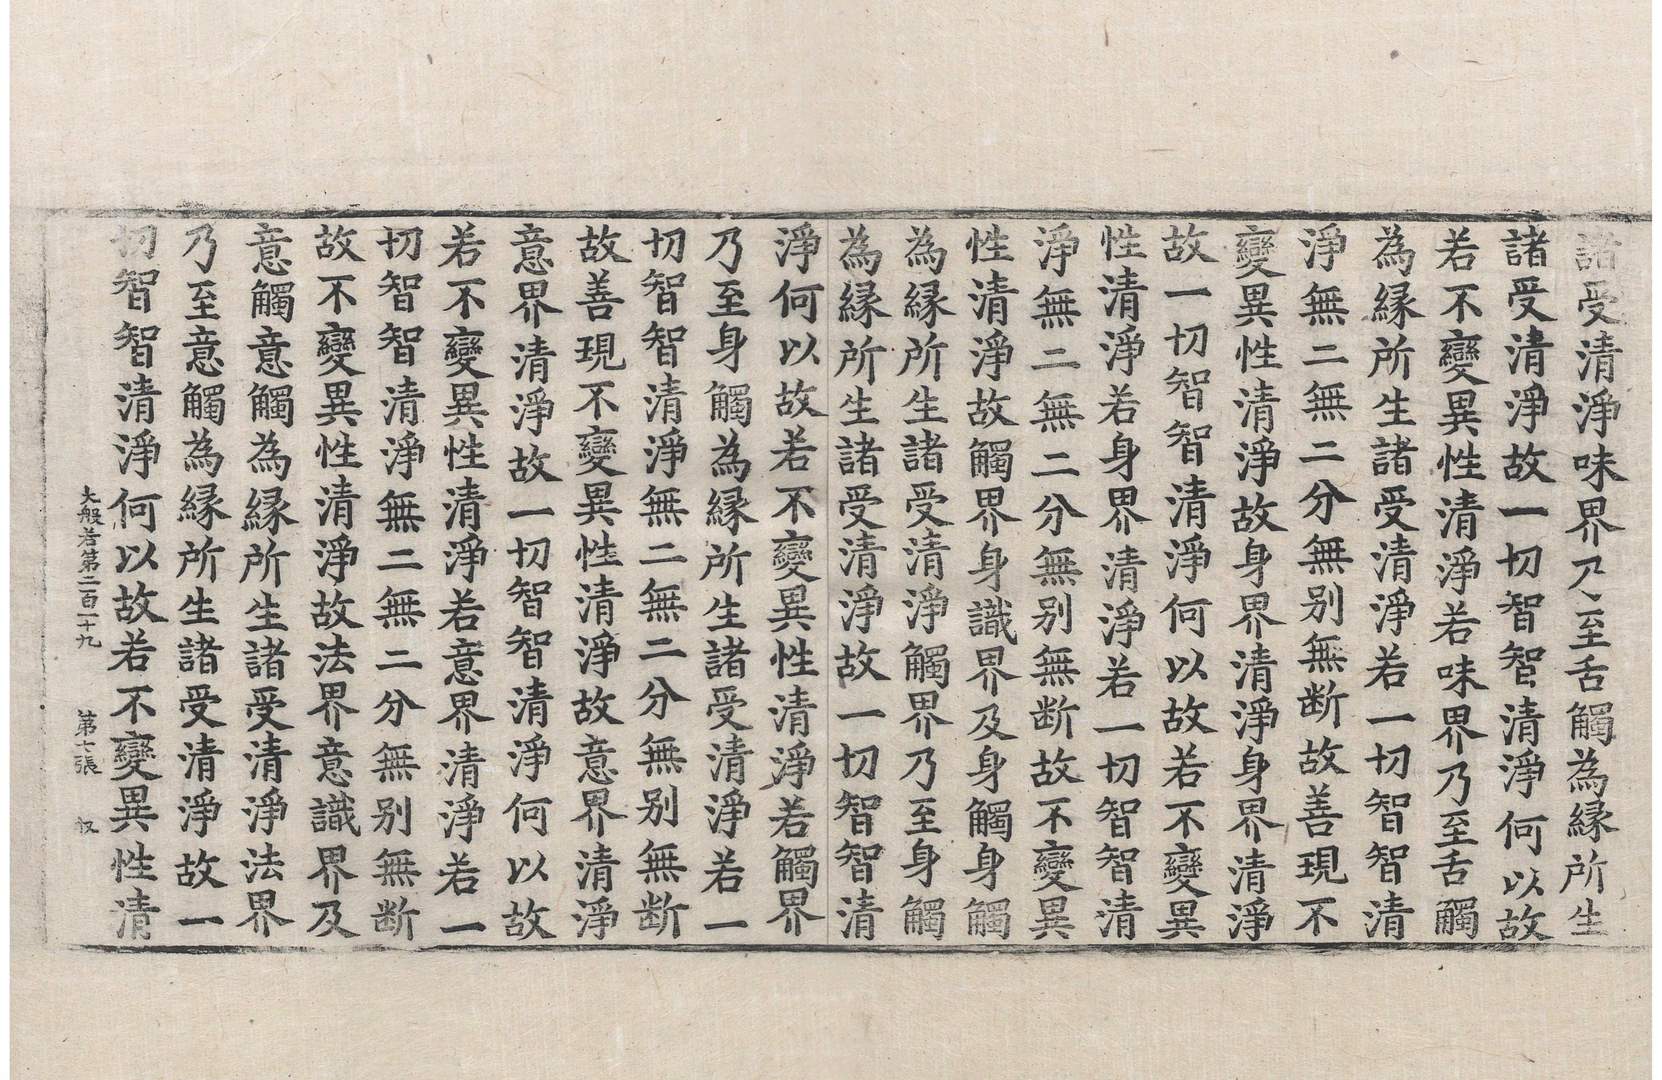 諸受清淨味界乃至舌觸為緣所生
諸受清淨故一切智智清淨何以故
若不變異性清淨若味界乃至舌觸
為緣所生諸受清淨若一切智智清
淨無二無二分無別無斷故善現不
變異性清淨故身界清淨身界清淨
故一切智智清淨何以故若不變異
性清淨若身界清淨若一切智智清
淨無二無二分無別無断故不變異
性清淨故觸界身識界及身觸身觸
為緣所生諸受清淨觸界乃至身觸
為緣所生諸受清淨故一切智智清
淨何以故若不變異性清淨若觸界
乃至身觸為緣所生諸受清淨若一
切智智清淨無二無二分無別無断
故善現不變異性清淨故意界清淨
意界清淨故一切智智清淨何以故
若不變異性清淨若意界清淨若一
切智智清淨無二無二分無別無断
故不變異性清淨故法界意識界及
意觸意觸為緣所生諸受清淨法界
乃至意觸為緣所生諸受清淨故一
切智智清淨何以故若不變異性清
大般若第二百二十九　第七張